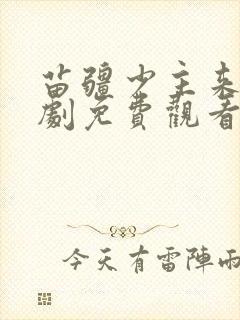 苗疆少主来
劇免費觀看
今天有雷陣雨